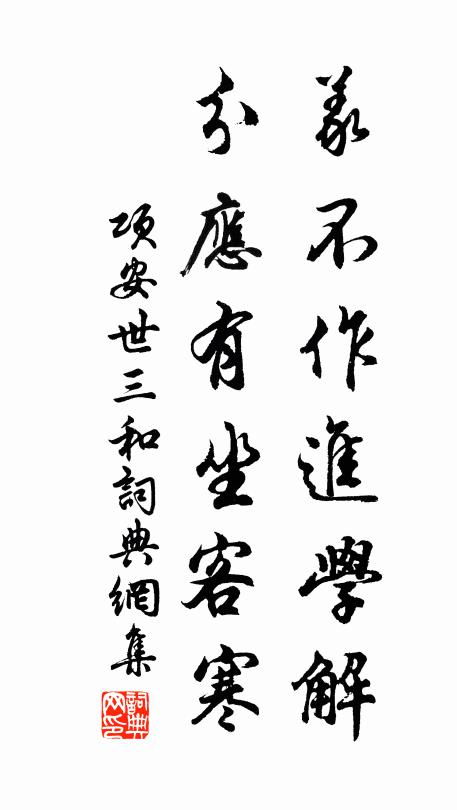 義不作進學解
分應有坐客寒
項安世三和詞典網集
詞典網印